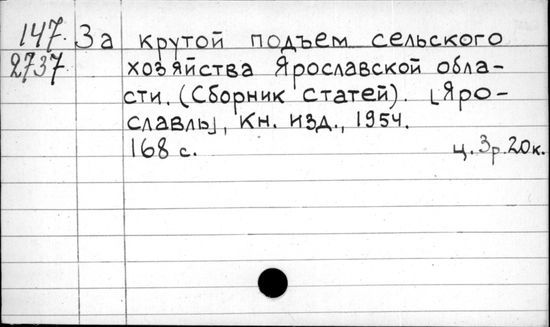 147. За крутой подъем сельского
2737 хозяйства Ярославской обла-
сти. (Сборник статей). [Яро-
славль], Кн. изд., 1954.
168 с. ц. 3р.20к.